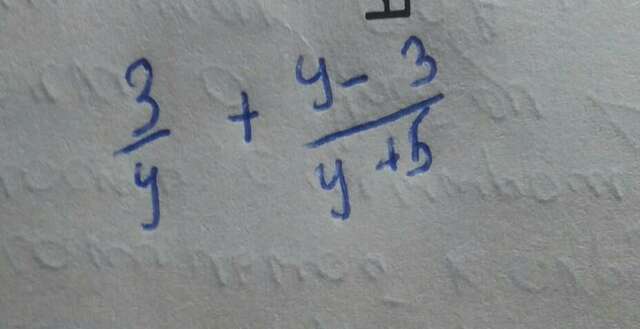 3/y + (y - 3)/(y + 5)